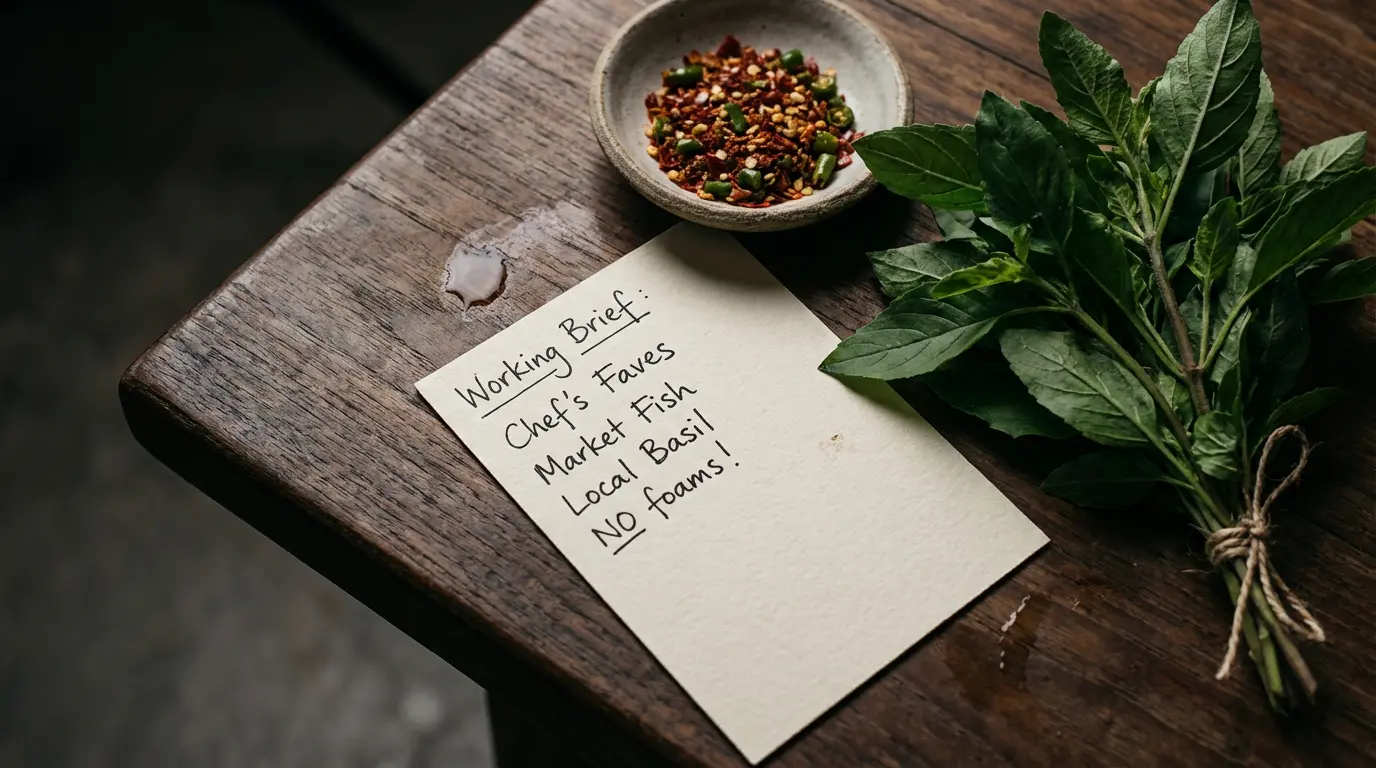 Working Brief:
Chef's Faves
Market Fish
Local Basil
NO foams!